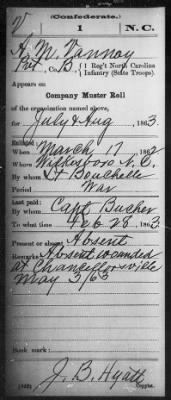 (Confederate.)
V 1 N.C.
A. M. Vannoy
Pvt, Co. B, 1 Reg't North Carolina
Infantry (State Troops)
Appears on
Company Muster Roll
of the organization named above,
for July & Aug, 1863.
Enlisted:
When March 17, 1862
Where Wilkesboro N. C.
By whom Lt Bouchelle
Period War
Last paid:
By whom Capt. Bucher
To what time Feb 28, 1863
Present or absent Absent
Remarks: Absent wounded
at Chancellorsville
May 3/63
Book mark:
J. B. Hyatt
(642) Copyist.